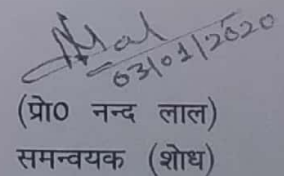 03/01/2020
(प्रो0 नन्द लाल)
समन्वयक (शोध)